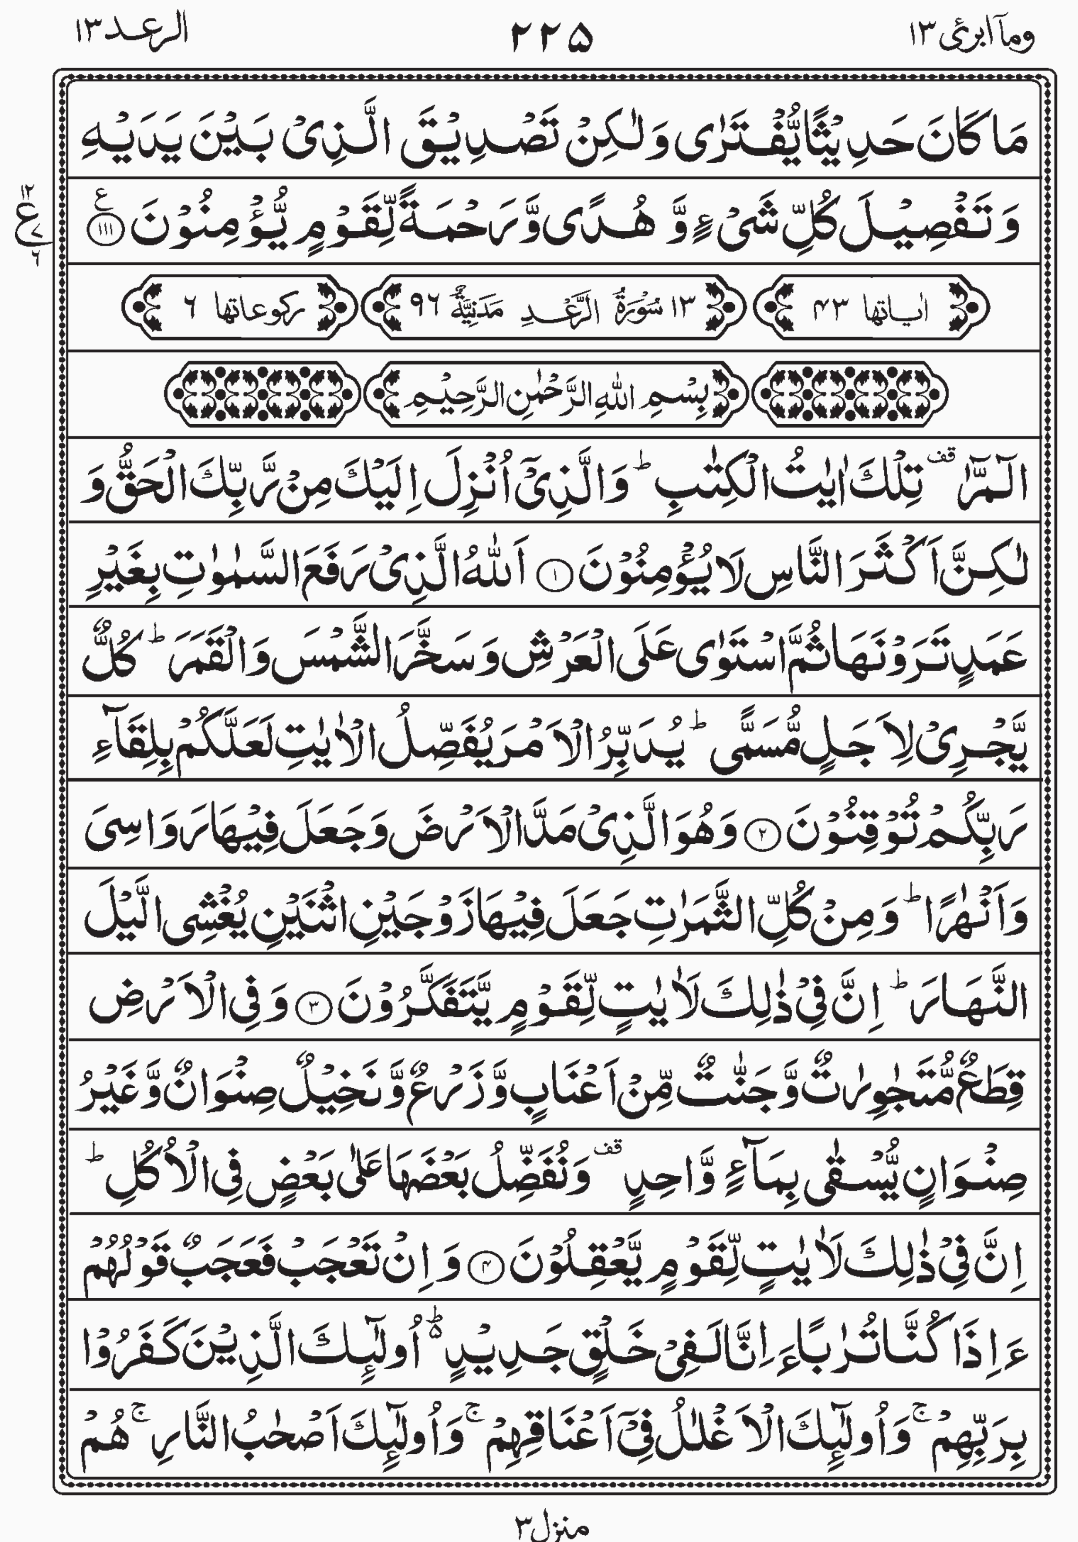 وماۤ ابرئ ١٣ ٢٢٥ الرعد ١٣
مَا كَانَ حَدِيْثًا يُّفْتَرٰى وَلٰكِنْ تَصْدِيْقَ الَّذِىْ بَيْنَ يَدَيْهِ
وَتَفْصِيْلَ كُلِّ شَىْءٍ وَّ هُدًى وَّرَحْمَةً لِّقَوْمٍ يُّؤْمِنُوْنَ ۝١١١ ع
١٢ ع ٧ ٦
اٰیاتها ٤٣ ١٣ سُوْرَةُ الرَّعْدِ مَدَنِيَّةٌ ٩٦ رکوعاتها ٦
بِسْمِ اللّٰهِ الرَّحْمٰنِ الرَّحِيْمِ
الٓمّٓرٰ ۗقف تِلْكَ اٰيٰتُ الْكِتٰبِ ؕ وَالَّذِىْۤ اُنْزِلَ اِلَيْكَ مِنْ رَّبِّكَ الْحَقُّ وَ
لٰكِنَّ اَكْثَرَ النَّاسِ لَا يُؤْمِنُوْنَ ۝١ اَللّٰهُ الَّذِىْ رَفَعَ السَّمٰوٰتِ بِغَيْرِ
عَمَدٍ تَرَوْنَهَا ثُمَّ اسْتَوٰى عَلَى الْعَرْشِ وَسَخَّرَ الشَّمْسَ وَالْقَمَرَ ؕ كُلٌّ
يَّجْرِىْ لِاَجَلٍ مُّسَمًّى ؕ يُدَبِّرُ الْاَمْرَ يُفَصِّلُ الْاٰيٰتِ لَعَلَّكُمْ بِلِقَآءِ
رَبِّكُمْ تُوْقِنُوْنَ ۝٢ وَهُوَ الَّذِىْ مَدَّ الْاَرْضَ وَجَعَلَ فِيْهَا رَوَاسِىَ
وَاَنْهٰرًا ؕ وَمِنْ كُلِّ الثَّمَرٰتِ جَعَلَ فِيْهَا زَوْجَيْنِ اثْنَيْنِ يُغْشِى الَّيْلَ
النَّهَارَ ؕ اِنَّ فِىْ ذٰلِكَ لَاٰيٰتٍ لِّقَوْمٍ يَّتَفَكَّرُوْنَ ۝٣ وَفِى الْاَرْضِ
قِطَعٌ مُّتَجٰوِرٰتٌ وَّجَنّٰتٌ مِّنْ اَعْنَابٍ وَّزَرْعٌ وَّنَخِيْلٌ صِنْوَانٌ وَّغَيْرُ
صِنْوَانٍ يُّسْقٰى بِمَآءٍ وَّاحِدٍ ۗقف وَنُفَضِّلُ بَعْضَهَا عَلٰى بَعْضٍ فِى الْاُكُلِ ؕ
اِنَّ فِىْ ذٰلِكَ لَاٰيٰتٍ لِّقَوْمٍ يَّعْقِلُوْنَ ۝٤ وَاِنْ تَعْجَبْ فَعَجَبٌ قَوْلُهُمْ
ءَاِذَا كُنَّا تُرٰبًا ءَاِنَّا لَفِىْ خَلْقٍ جَدِيْدٍ ؕ۬ اُولٰٓئِكَ الَّذِيْنَ كَفَرُوْا
بِرَبِّهِمْ ۚ وَاُولٰٓئِكَ الْاَغْلٰلُ فِىْۤ اَعْنَاقِهِمْ ۚ وَاُولٰٓئِكَ اَصْحٰبُ النَّارِ ۚ هُمْ
منزل ٣